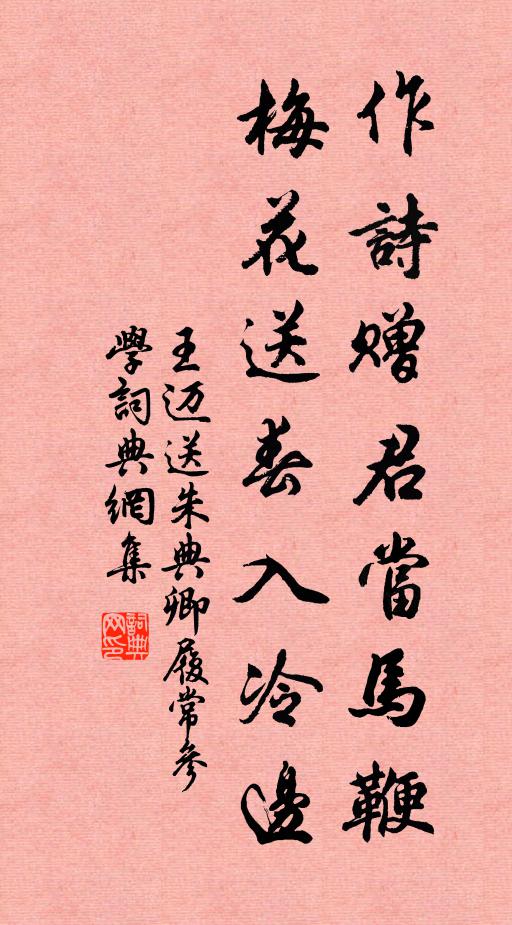 作詩贈君當馬鞭
梅花送春入冷邊
王迈送朱典卿履常參
學詞典網集
詞典网印